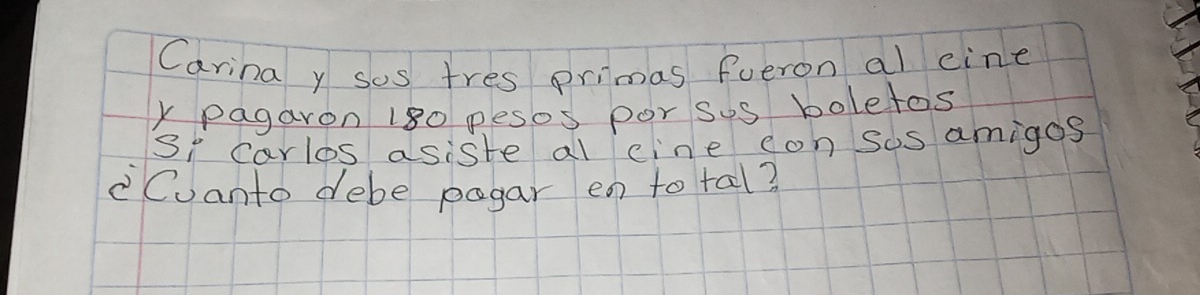 Carina y sus tres primas fueron al cine
y pagaron 180 pesos por sus boletos
Si carlos asiste al cine con sus amigos
¿Cuanto debe pagar en total?